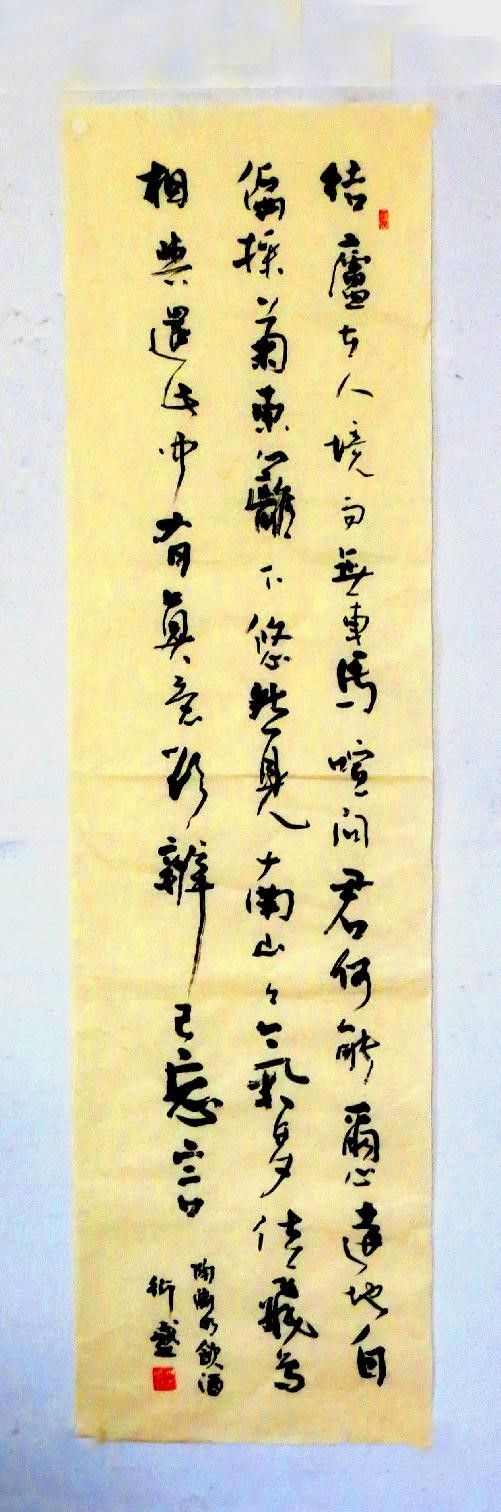 結廬在人境而無車馬喧問君何能爾心遠地自
偏採菊東籬下悠然見南山々氣日夕佳飛鳥
相與還此中有真意欲辨已忘言
陶淵明飲酒